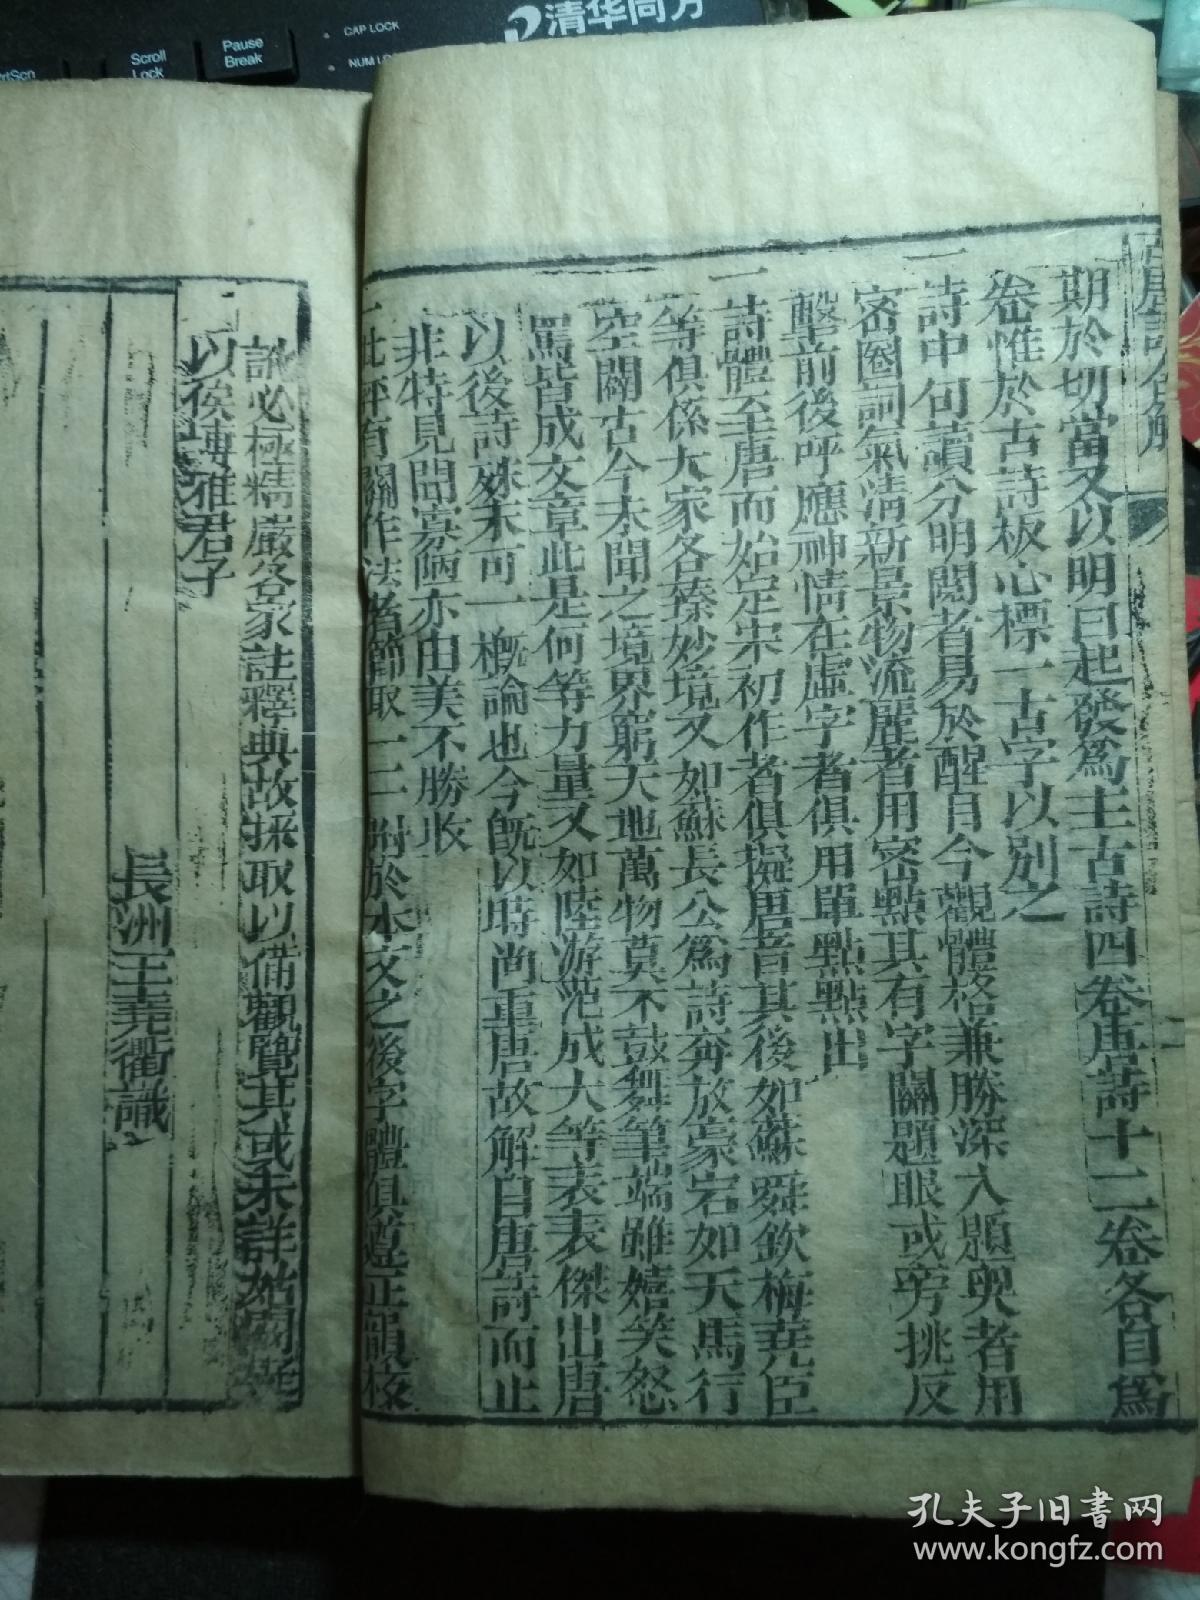 古唐詩合解
期於切當又以明白起發爲主古詩四卷唐詩十二卷各自爲
卷惟於古詩板心標一古字以別之
一詩中句讀分明閱者易於醒目今觀體格兼勝深入題奧者用
密圈詞氣清新景物流麗者用密點其有字關題眼或旁挑反
擊前後呼應神情在虛字者俱用單點點出
一詩體至唐而始定宋初作者俱擬唐音其後如蘇舜欽梅堯臣
等俱係大家各臻妙境又如蘇長公爲詩奔放豪宕如天馬行
空闢古今未聞之境界窮天地萬物莫不鼓舞筆端雖嬉笑怒
罵皆成文章此是何等力量又如陸游范成大等表表傑出唐
以後詩殊未可一概論也今旣以時尚重唐故解自唐詩而止
非特見聞寡陋亦由美不勝收
一批評有關作法者節取一二附於本文之後字體俱遵正韻校
訛必極精嚴各家註釋典故採取以備觀覽其或未詳姑闕疑
以俟博雅君子
長洲王堯衢識
Scroll Lock
Pause Break
CAP LOCK
清华同方
孔夫子旧书网
www.kongfz.com